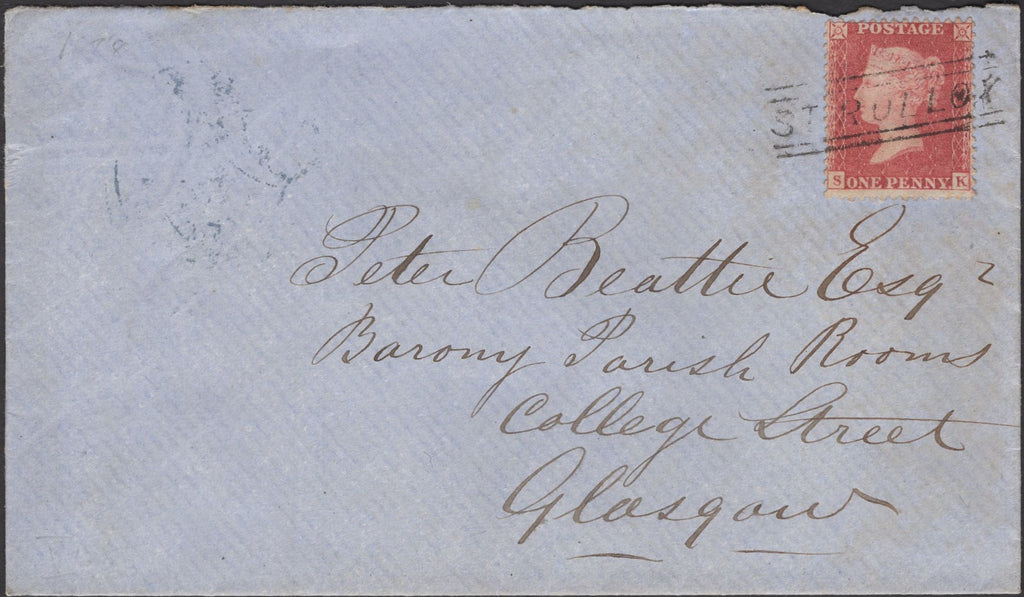 POSTAGE
ST ROLLOX
S ONE PENNY K
Peter Beattie Esqr
Barony Parish Rooms
College Street
Glasgow